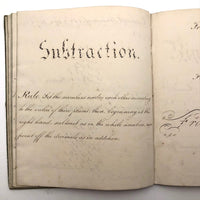 Subtraction.
Rule. Set the numbers under each other according
to the value of their places; then, beginning at the
right hand, subtract as in the whole numbers,
point off the decimals as in addition.
Fr